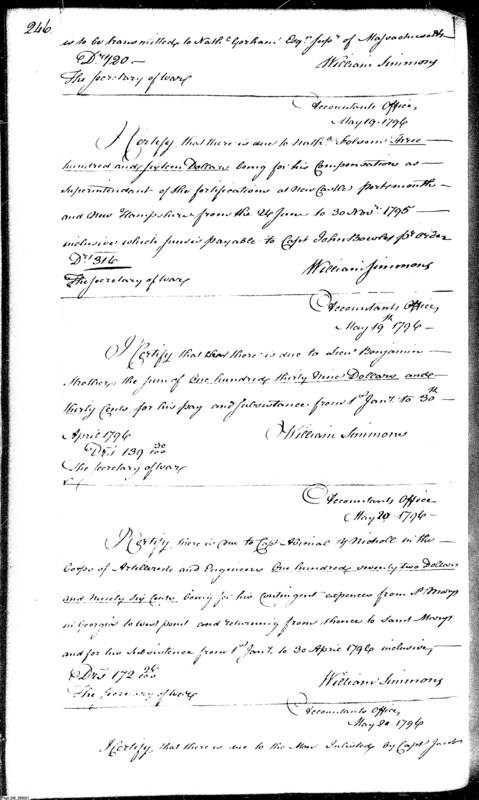 246
is to be transmitted to Nathl Gorham Esqr Supr of Massachusetts
Drs 720 —
William Simmons
The Secretary of War
Accountants Office,
May 19. 1796
I Certify, that there is due to Nathl Folsom Three
hundred and sixteen Dollars being for his Compensation as
Superintendant of the fortifications at New Castle Portsmouth
and New Hampshire from the 24 June to 30 Novr 1795 —
inclusive which sum is payable to Capt John Bowles pr order
Drs 316
William Simmons
The Secretary of War
Accountants Office,
May 19th 1796 —
I Certify that there is due to Lieut Benjamin
Strother, the sum of One hundred thirty nine Dollars and
thirty Cents for his pay and subsistance from 1st Jany to 30th
April 1796
William Simmons
Drs 139 30/100
The Secretary of War
Accountants Office
May 20 1796
I Certify, there is due to Capt Abimal Y Nicholl in the
Corps of Artillerists and Engineers One hundred seventy two Dollars
and ninety six Cents being for his Contingent expences from St Marys
in Georgia to West point and returning from thence to Saint Marys
and for his Subsistence from 1st Jany to 30 April 1796 inclusive,
Drs 172 96/100
William Simmons
The Secretary of War
Accountants Office,
May 20. 1796
I Certify, that there is due to the Men Inlisted by Capt Jacob